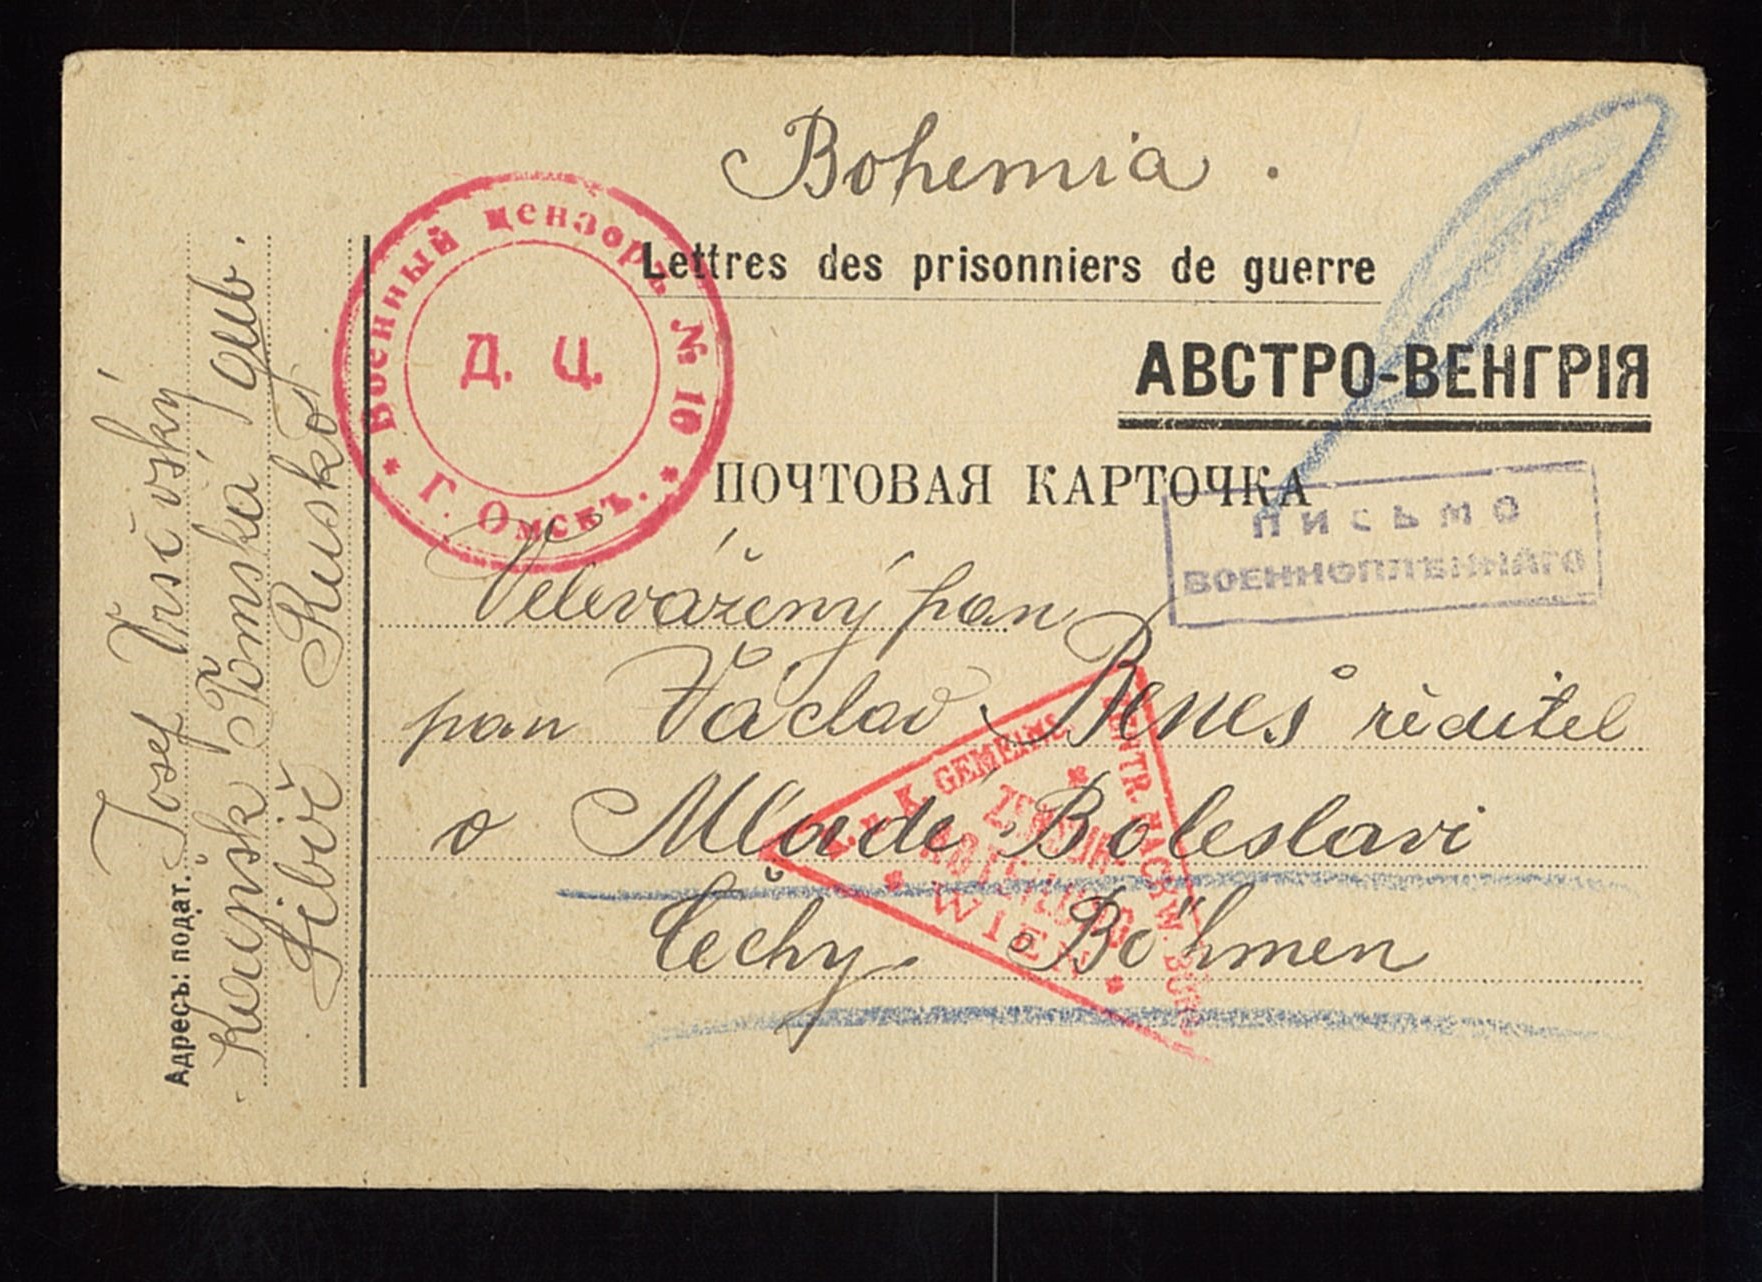 Bohemia.
Lettres des prisonniers de guerre
АВСТРО-ВЕНГРІЯ
ПОЧТОВАЯ КАРТОЧКА
Военный цензоръ № 16
Д. Ц.
Г. Омскъ.
ПИСЬМО
ВОЕННОПЛѢННАГО
Velevážený pan
pan Václav Beneš ředitel
v Mladé Boleslavi
Čechy. Böhmen
K. u. K. GEMEINS. ZENTR. NACHW. BUREAU
ZENSUR
ABTEILUNG
WIEN
Адресъ: подат.
Josef Vršovský
Kainsk Tomská gub.
Sibiř Rusko